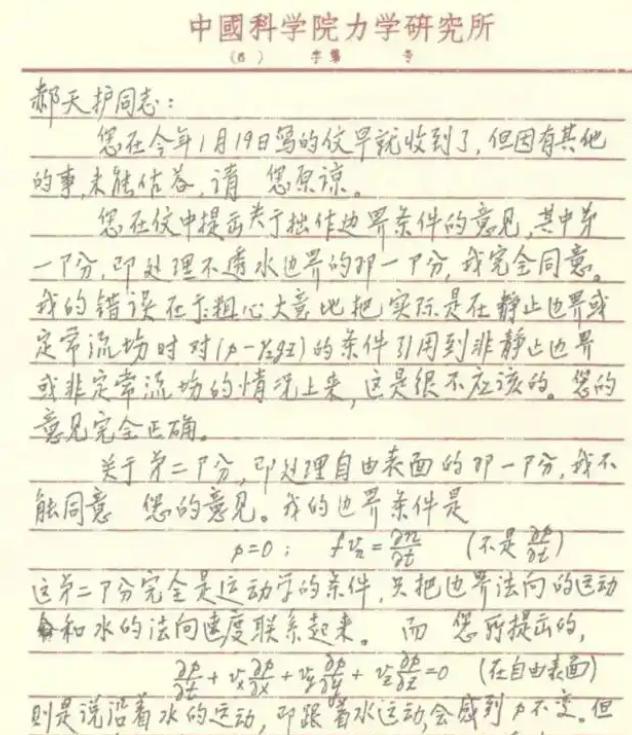 中國科学院力学研究所
( 6 ) 字第 号
郝天护同志：
您在今年1月19日写的信早就收到了，但因有其他
的事，未能作答，请 您原谅。
您在信中提出关于拙作边界条件的意见，其中第
一下分，即处理不透水边界的那一下分，我完全同意。
我的错误在于粗心大意地把实际是在静止边界或
定常流场时对(p-γ₂gz)的条件引用到非静止边界
或非定常流场的情况上来，这是很不应该的。您的
意见完全正确。
关于第二下分，即处理自由表面的那一下分，我不
能同意 您的意见。我的边界条件是
p=0； fvₙ=∂n/∂t (不是∂p/∂t)
这第二下分完全是运动学的条件，只把边界法向的运动
和水的法向速度联系起来。 而 您所提出的，
∂p/∂t+vₓ∂p/∂x+v_y∂p/∂y+v_z∂p/∂z=0 (在自由表面)
则是说沿着水的运动，即跟着水运动，会感到p不变。但